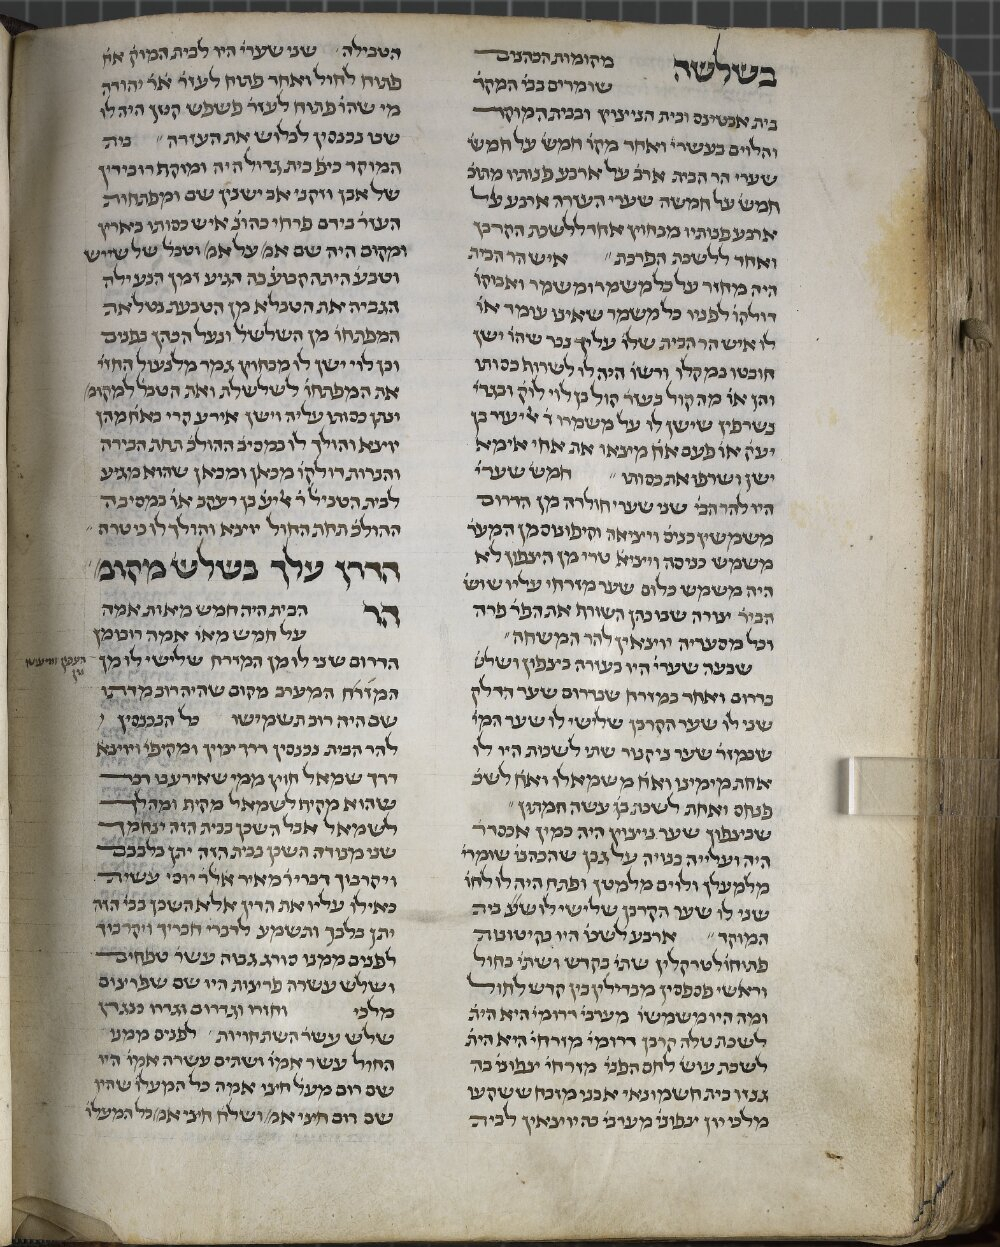 בשלשה מקומות הכהנים
שומרים בבי׳ המקד׳
בית אבטינס ובית הניצוץ ובבית המוקד
והלוים בעשרי׳ ואחד מקו׳ חמש׳ על חמש׳
שערי הר הבית ארב׳ על ארבע פנותיו מתוכ׳
חמש׳ על חמשה שערי העזרה ארבע על
ארבע פנותיו מבחוץ אחד ללשכת הקרבן
ואחד ללשכת הפרכת״ איש הר הבית
היה מחזר על כל משמר ומשמר ואבוקו׳
דולקו׳ לפניו כל משמר שאינו עומד או׳
לו איש הר הבית שלו׳ עליך נכר שהו׳ ישן
חובטו במקלו ורשו׳ היה לו לשרוף כסותו
והן או׳ מה קול בעזר׳ קול בן לוי לוק׳ ובגדי׳
נשרפין שישן לו על משמרו ר׳ אליעזר בן
יעק׳ או׳ פעם אח׳ מיצאו את אחי אימא
ישן ושרפו את כסותו״ חמש׳ שערי׳
היו להר הבי׳ שני שערי חולדה מן הדרום
משמשין כניס׳ וייציאה וקיפונוס מן המער׳
משמש כניסה וייציא׳ טרי מן הצפון לא
היה משמש כלום שער מזרחי עליו שוש׳
הביר׳ יצורה שבו כהן השורף את הפר׳ פרה
וכל מסעדיה יויצאין להר המשחה״
שבעה שערי׳ היו בעזרה בצפון ושלש׳
בדרום ואחד במזרח שבדרום שער הדלק
שני לו שער הקרבן שלישי לו שער המי׳
שבמזר׳ שער ניקנור שתי לשכות היו לו
אחת מימינו ואח׳ משמאלו ואח׳ לשכ׳
פנחס ואחת לשכת בן עשה חמתון״
שבצפון שער ניצוץ היה כמין אכסדר׳
היה ועלייה בנויה על גבן שהכהנ׳ שומרי׳
מלמעלן ולוים מלמטן ופתח היה לו לחו׳
שני לו שער הקרבן שלישי לו שע׳ בית
המוקד״ ארבע לשכו׳ היו בקיטונות
פתוחו׳ לטרקלין שתי׳ בקדש ושתי׳ בחול
וראשי פספסין מבדילין בין קדש לחול
ומה היו משמשו׳ מערבי׳ דרומי׳ היא הית׳
לשכת טלה קרבן דרומי׳ מזרחי׳ היא הית׳
לשכת עוש׳ לחם הפני׳ מזרחי׳ צפוני׳ בה
גנזו בית חשמונאי אבני מזבח ששקצו
מלכי יון צפוני׳ מערבי׳ בה יויצאין לבית
הטבילה׳ שני שערי׳ היו לבית המוק׳ אח׳
פתוח לחול ואחד פתוח לעזר׳ א״ר יהודה
מי שהו׳ פתוח לעזר׳ פשפש קטן היה לו
שבו נכנסין לבלוש את העזרה״ בית
המוקד כיפ׳ בית גדול היה ומוקף רובידין
של אבן וזקני אב ישנין שם ומפתחות
העזר׳ בידם פרחי כהונ׳ איש כסותו בארץ
ומקום היה שם אמ׳ על אמ׳ וטבל׳ של שייש
וטבע׳ היתה קבוע׳ בה הגיע זמן הנעילה
הגביה את הטבלא מן הטבעת נטל את
המפתחו׳ מן השלשל׳ ונעל הכהן בפנים
ובן לוי ישן לו מבחוץ גמר מלנעול החזי׳
את המפתחו׳ לשלשלת ואת הטבל׳ למקומ׳
ונתן כסותו עליה וישן אירע קרי באח׳ מהן
יויצא והולך לו במסיב׳ ההולכ׳ תחת הבירה
והנרות דולקו׳ מכאן ומכאן שהוא מגיע
לבית הטביל׳ ר׳ אליע׳ בן יעקב או׳ במסיבה
ההולכ׳ תחת החול יויצא והולך לו בטרה״
הדרן עלך בשלש׳ מקומ׳
הר הבית היה חמש מאות אמה
על חמש מאו׳ אמה רובו מן
הדרום שני לו מן המזרח שלישי לו מן
הצפון
המזרח המערב מקום שהיה רוב מדתו
שם היה רוב תשמישו כל הנכנסין
להר הבית נכנסין דרך ימין ומקיפי׳ ויויצא׳
דרך שמאל חוץ ממי שאירעבו דבר
שהוא מקיף לשמאל מה לך מקיף
לשמאל אבל השכן בבית הזה ינחמך
שני מנודה השכן בבית הזה יתן בלבבם
ויקרבוך דברי ר׳ מאיר אל׳ ר׳ יוסי עשית
כאילו עליו את הדין אלא השכן בבי׳ הזה
יתן בלבך ותשמע לדברי חבריך ויקרבוך
לפנים ממנו סורג גבוה עשר׳ טפחים
ושלש עשרה פריצות היו שם שפריצום
מלכי וחזרו וגדרום וגזרו כנגדן
שלש עשר׳ השתחויות״ לפנים ממנו
החול עשר אמו׳ ושתים עשרה אמו׳ היו
שם רום מעל׳ חיצי אמה כל המעלו׳ שהיו
שם רום חיצי אמ׳ ושלח חיצי אמ׳ כל המעלו׳